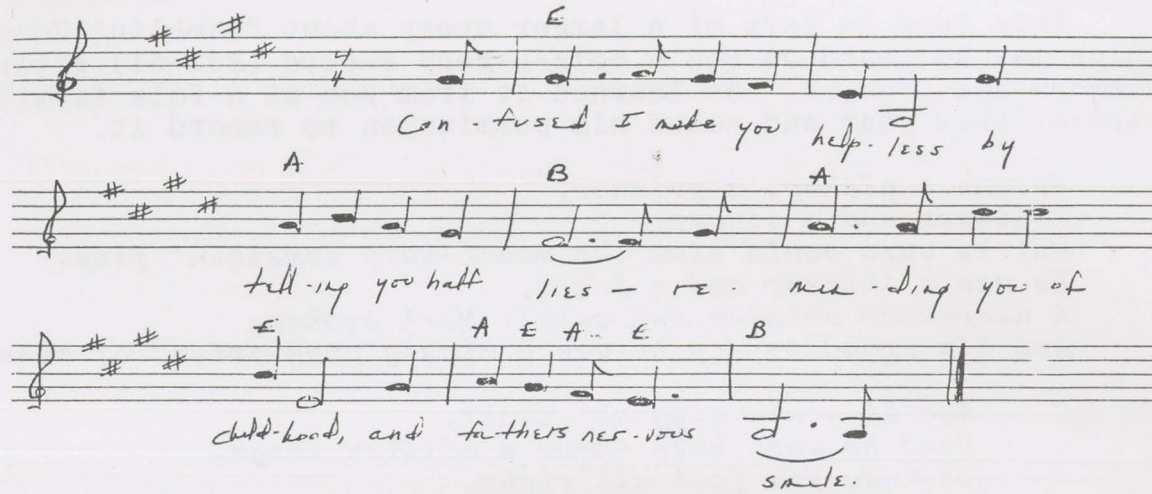 E
4
4
Con - fused I make you help - less by
A B A
tell-ing you half lies - re min - ding you of
E A E A E B
child-hood, and fathers ner-vous
smile.